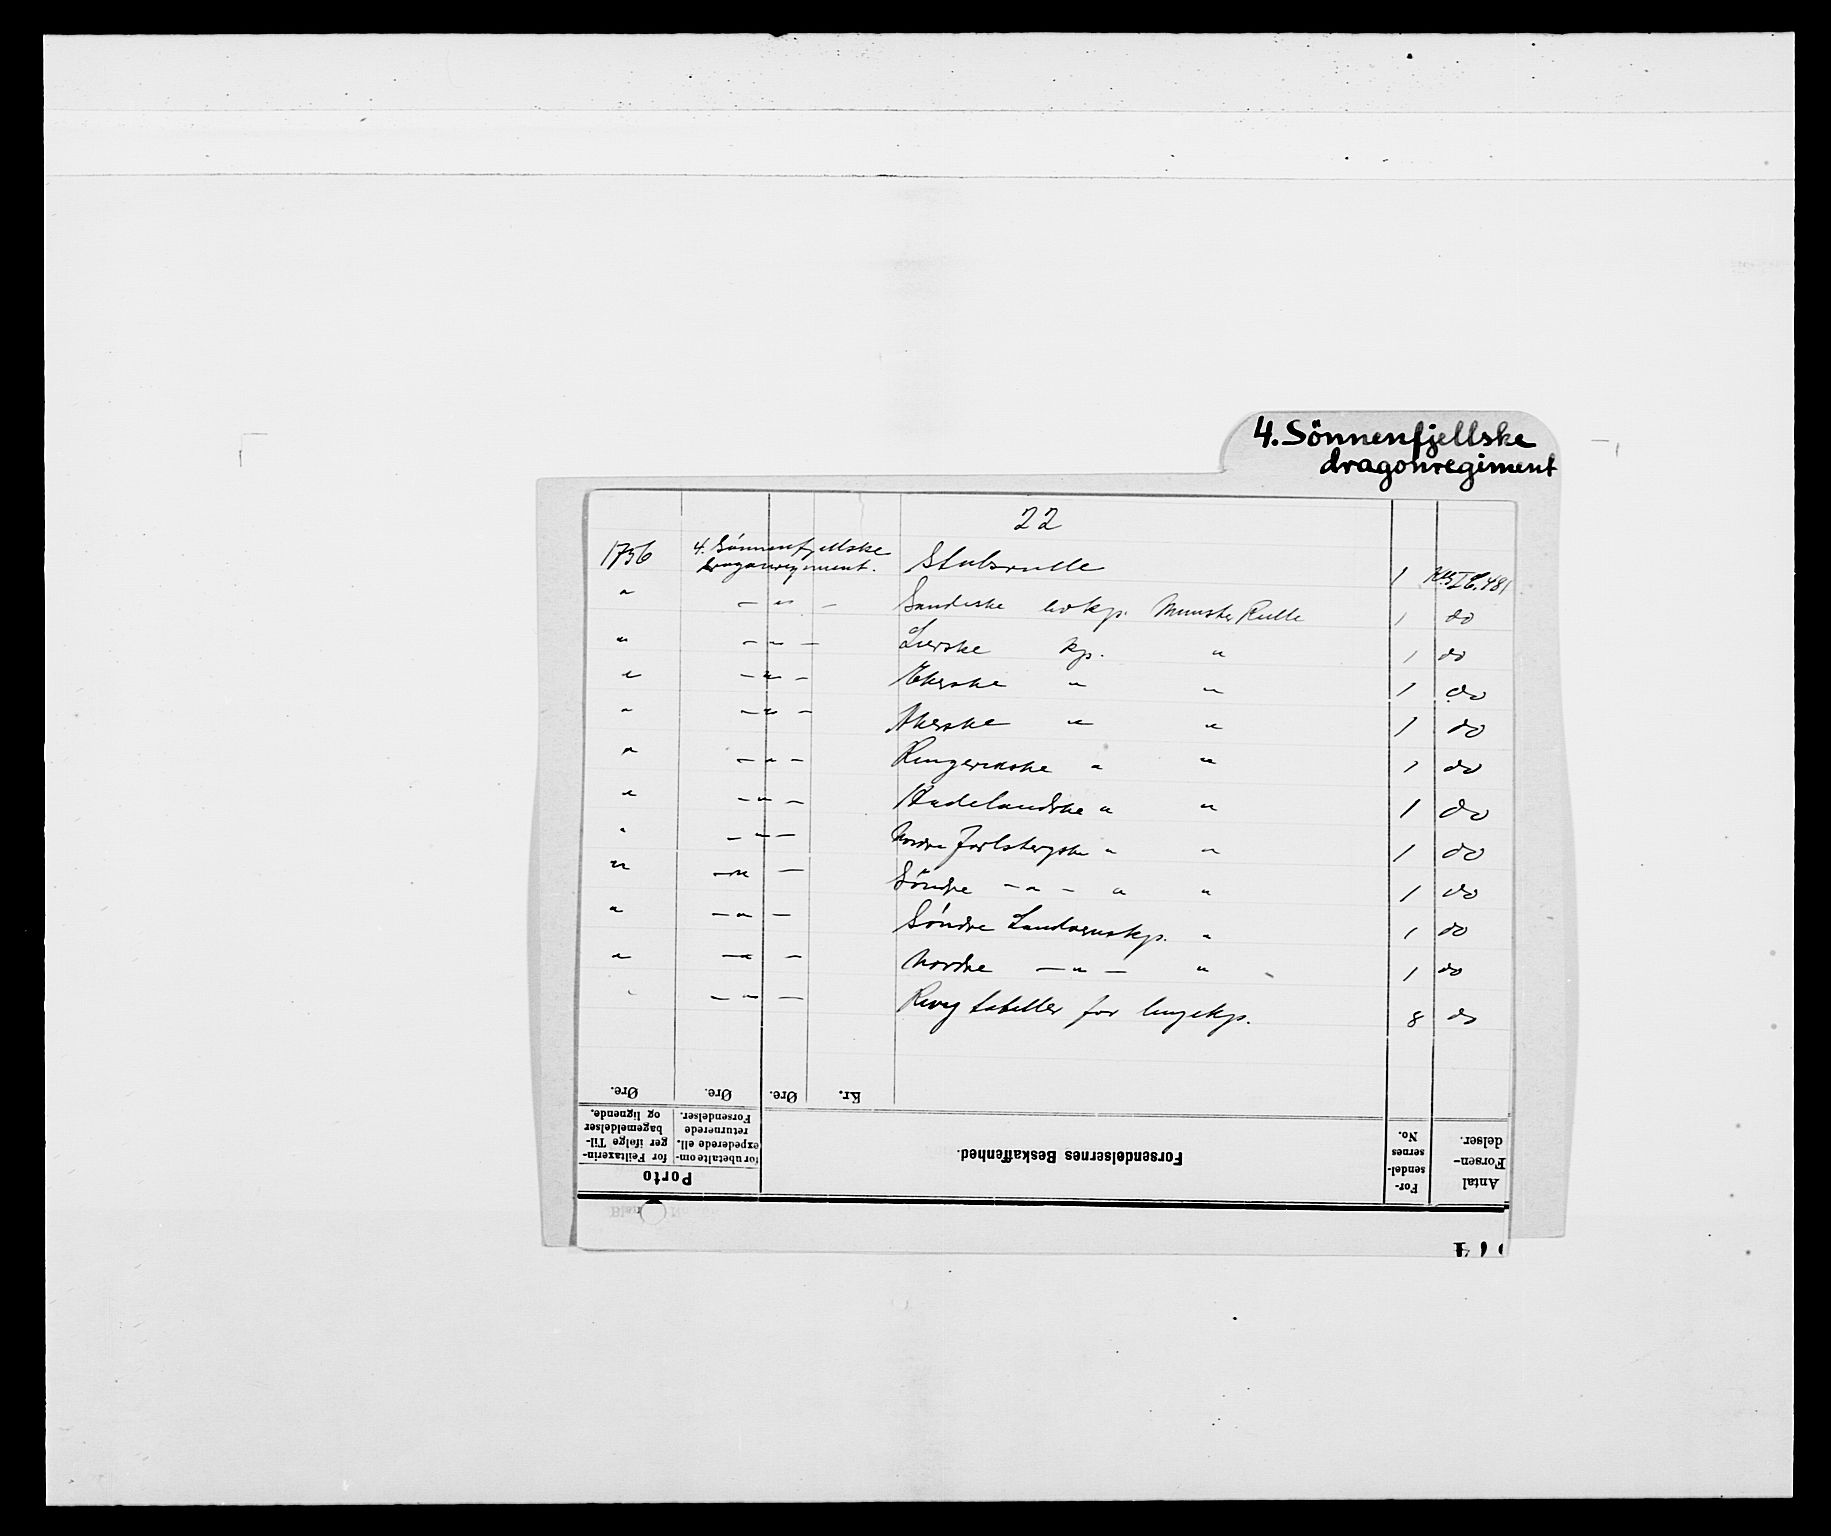 4. Sönnenfjellske
dragonregiment
22
1756 4. Sönnenfjellske
dragonregiment. Stabsrulle 1
" — " — Sandeske livkp. Munster Rulle 1 do
" — " — Lierske kp. " 1 do
" — " — Ekerske " " 1 do
" — " — Akerske " " 1 do
" — " — Ringerikske " " 1 do
" — " — Hadelandske " " 1 do
" — " — Nordre Jarlsbergske " " 1 do
" — " — Söndre — " — " " 1 do
" — " — Söndre Landvernskp. " 1 do
" — " — Nordre — " — " 1 do
" — " — tabeller for 8 do
Øre. Øre. Øre. Kr.
Porto
for Feiltaxerin-
ger ifølge Til-
bagemeldelser
og lignende.
for ubetalte om-
expederede ell.
returnerede
Forsendelser.
Forsendelsernes Beskaffenhed.
For-
sendel-
sernes
No.
Antal
Forsen-
delser.